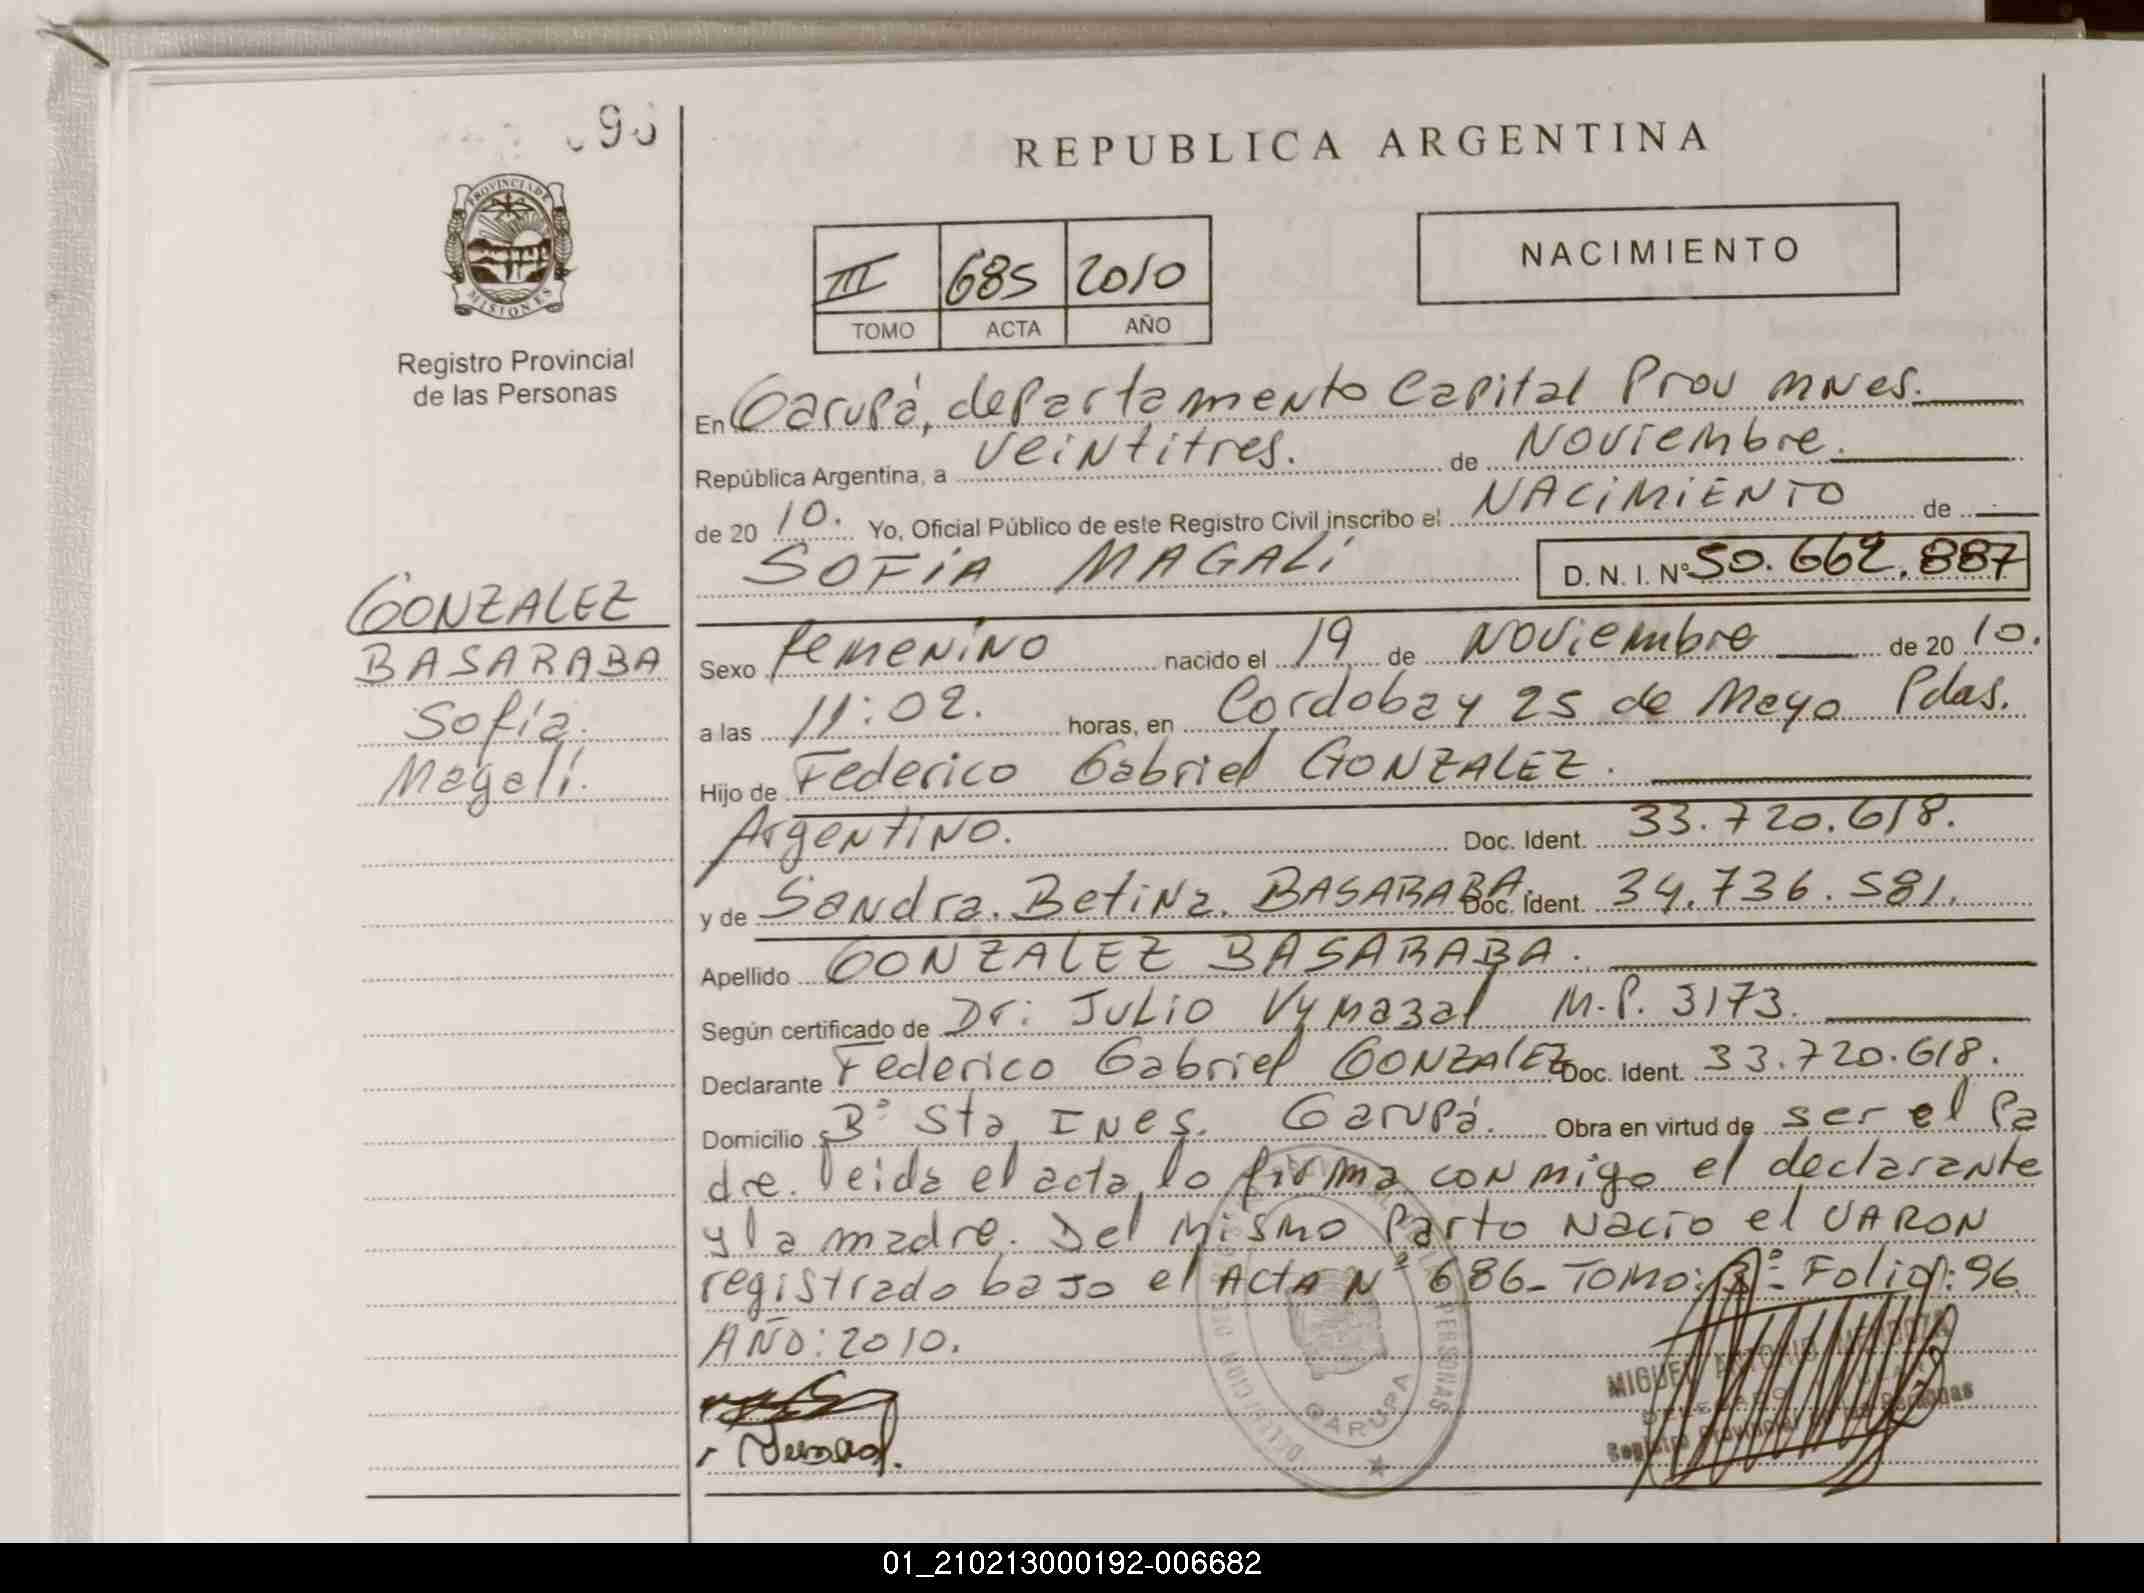 96
REPUBLICA ARGENTINA
PROVINCIA DE
MISIONES
Registro Provincial
de las Personas
III 685 2010
TOMO ACTA AÑO
NACIMIENTO
En Garupá, departamento Capital Prov MNes.
República Argentina, a veintitres. de Noviembre.
de 20 10. Yo, Oficial Público de este Registro Civil inscribo el NACIMIENTO de
SOFIA MAGALI D. N. I. Nº 50.662.887
GONZALEZ
BASARABA
Sofía.
Magalí.
Sexo femenino nacido el 19 de Noviembre de 20 10.
a las 11:02. horas, en Cordoba y 25 de Mayo Pdas.
Hijo de Federico Gabriel GONZALEZ.
Argentino. Doc. Ident. 33.720.618.
y de Sandra. Betina. BASARABA. Doc. Ident. 34.736.581.
Apellido GONZALEZ BASARABA.
Según certificado de Dr: Julio Vymazal M.P. 3173.
Declarante Federico Gabriel GONZALEZ Doc. Ident. 33.720.618.
Domicilio Bº Sta Ines. Garupá. Obra en virtud de ser el Pa
dre. leida el acta, lo firma conmigo el declarante
y la madre. Del mismo Parto Nacio el VARON
registrado bajo el ACTA Nº 686- TOMO: 3º- Folio: 96
AÑO: 2010.
GARUPA
PERSONAS
MIGUEL ANTONIO
Registro Provincial de las Personas
01_210213000192-006682